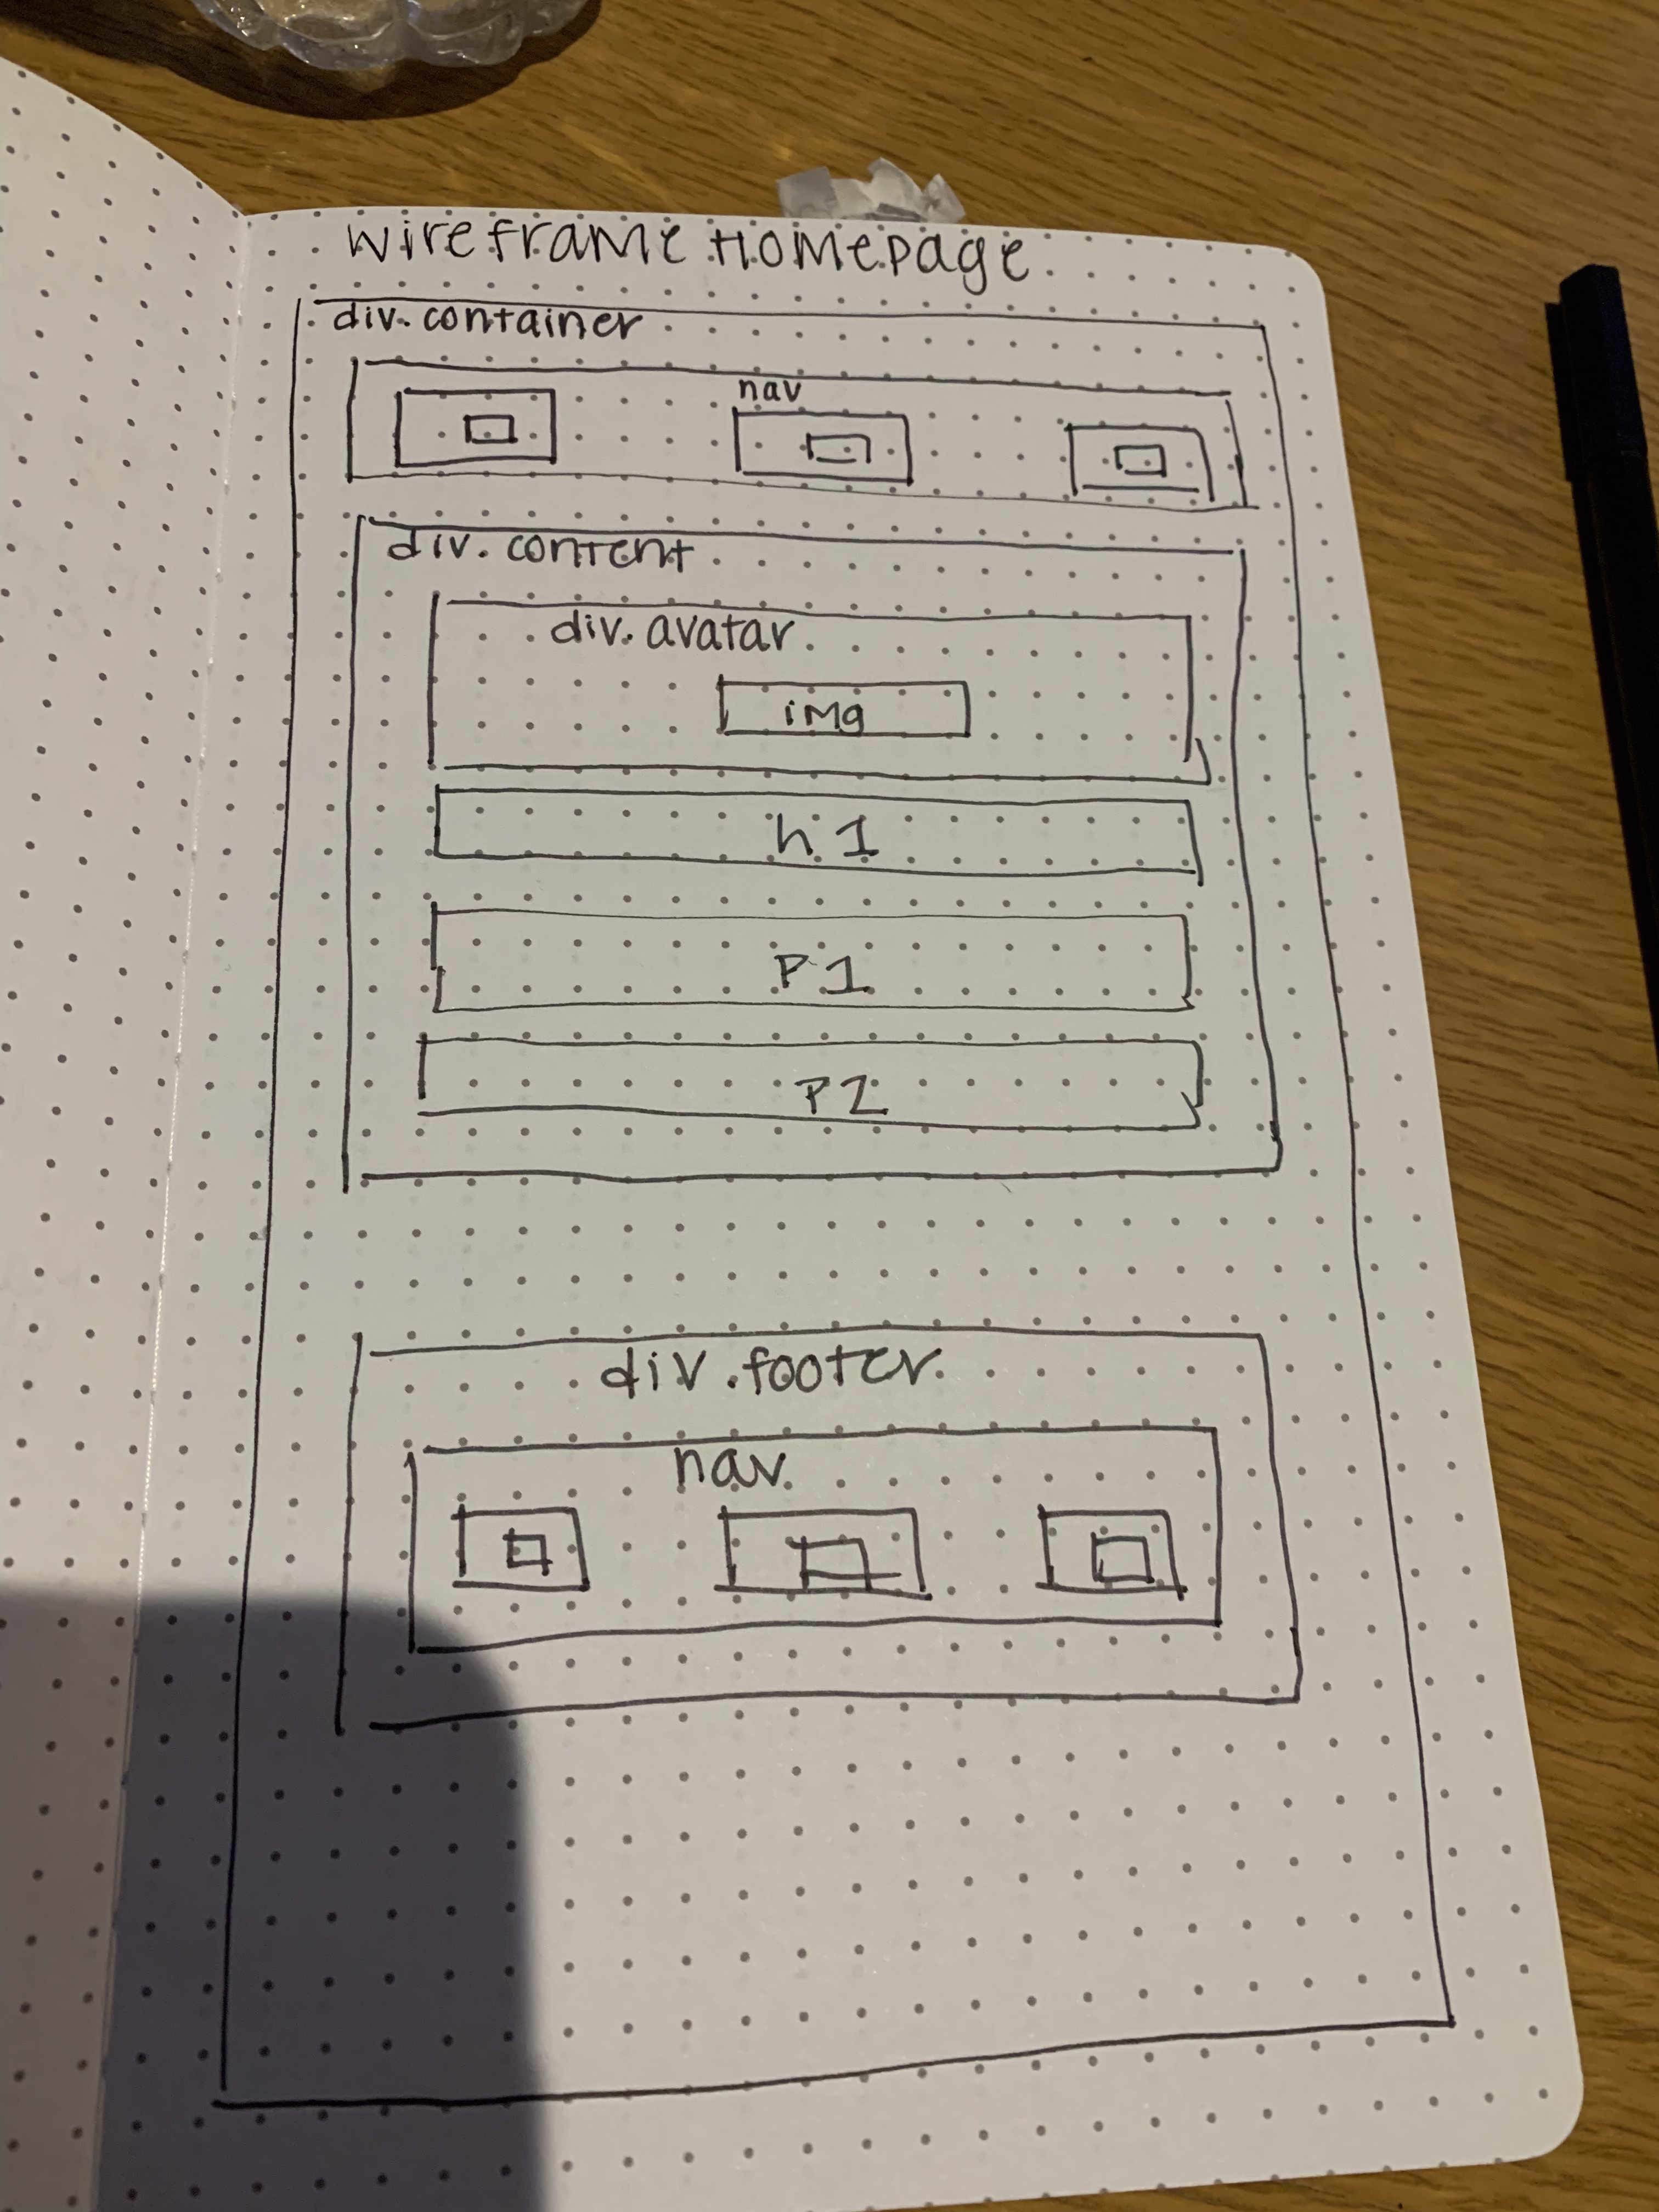 wireframe Homepage
div. container
nav
div. content
div. avatar
img
h1
P1
P2
div.footer
nav